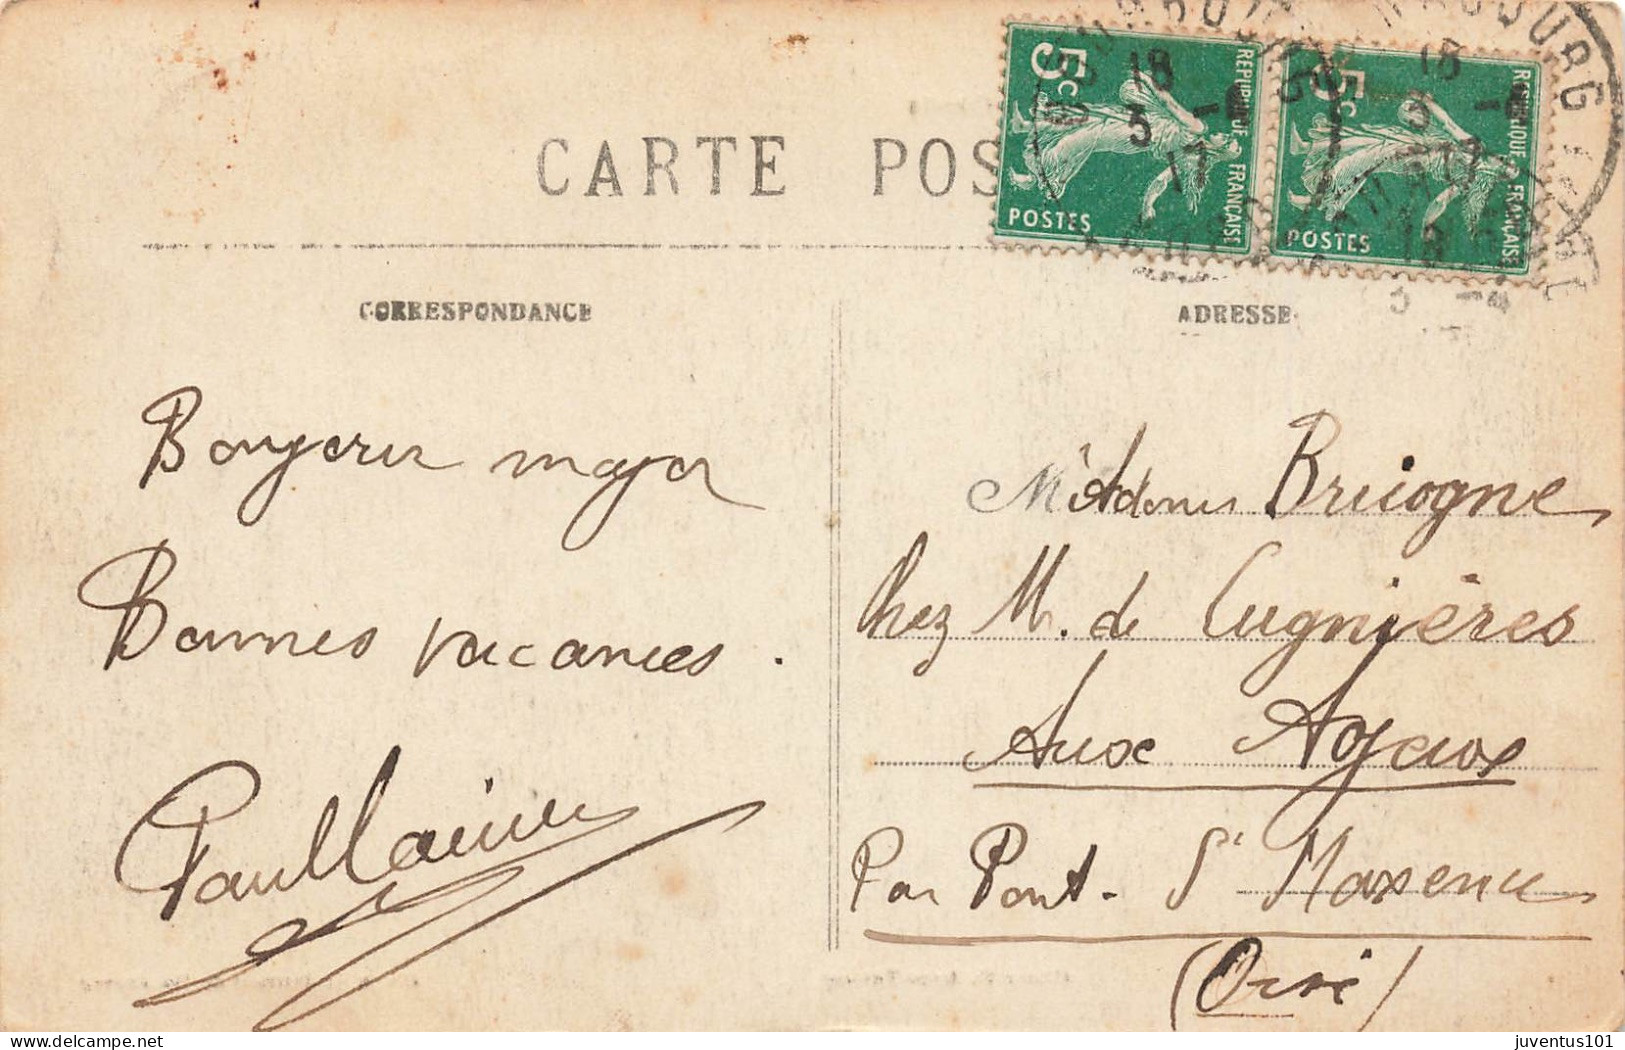 CARTE POS
5c
REPUBLIQUE FRANÇAISE
POSTES
5c
REPUBLIQUE FRANÇAISE
POSTES
18
3 -8
17
CORRESPONDANCE
ADRESSE
Bonjour major
Bonnes vacances.
Bricogne
Chez M. de Cugnières
Aux Ageux
Par Pont. St Maxence
(Oise)
www.delcampe.net
juventus101